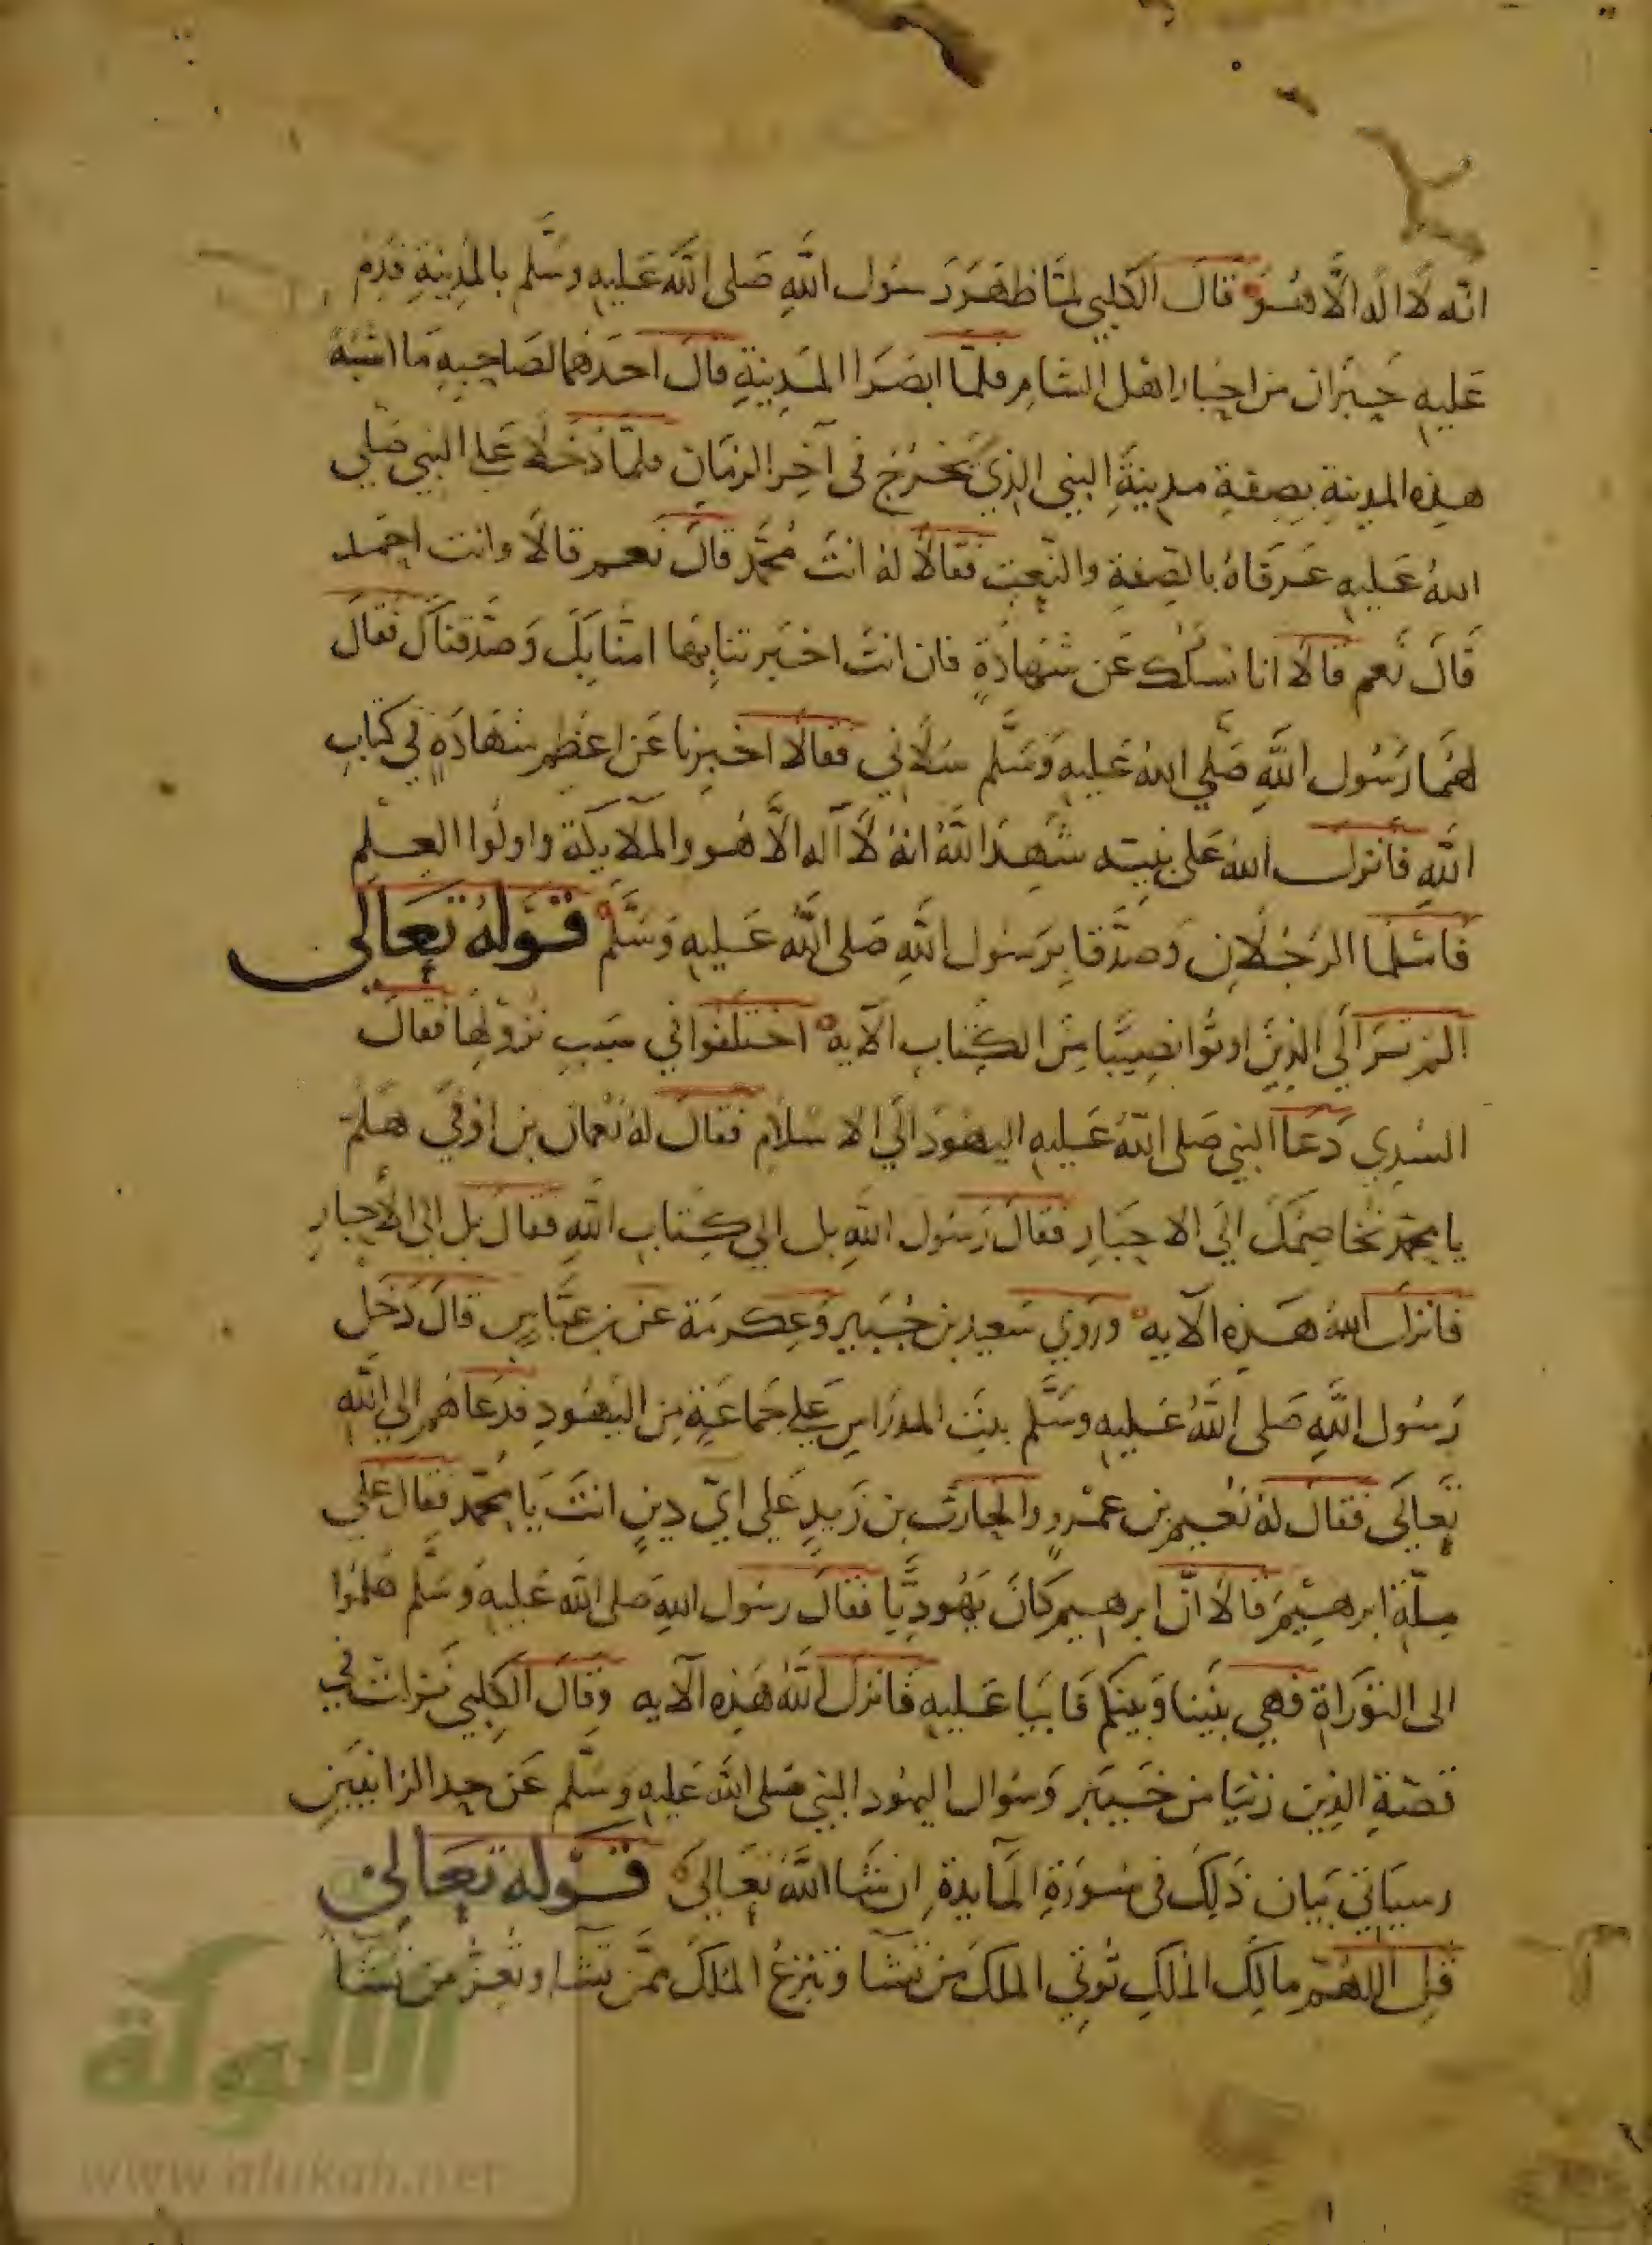 انّه لا اله الّا هُوَ قالَ الكلبي لمّا ظهَرَ رَسُول اللّهِ صَلى اللّه عَليهِ وسَلَّم بالمدِينةِ قدِمَ
عَليهِ حَبْرَان من احبار اهْل الشام فلمّا ابصَرَا المَدِينةِ قالَ احدَهُما لصَاحِبهِ مَا اشبَهَ
هذِه المدينةِ بصِفةِ مدِينةِ النبي الذِي يَخرُج في آخِر الزمَان فلمّا دَخَلَا عَلى النبي صَلي
اللهُ عَليهِ عَرَفاهُ بالصِفةِ والنّعتِ فقالَا لهُ انتَ مُحَمَّد قالَ نَعم قالَا وانت احمد
قَالَ نَعم قالَا انا نسلُك عَن شهَادَةٍ فان انتَ اخبَرتنا بِهَا امنّا بكَ وَصَدّقناكَ فقالَ
لهمَا رَسُول اللّهِ صَلّي اللهُ عَليهِ وَسَلّم سَلَاني فقالَا اخبِرنا عَن اعظم شهَادَةٍ في كتاب
اللّهِ فانزل اللهُ عَلى نبيّه شَهِدَ اللّهُ انهُ لَا اله الّا هُو والملايكة واولوا العِلم
فاسْلما الرَجُلَانِ وَصدّقا برَسُول اللّهِ صَلى اللّه عَليهِ وَسَلّم قَوْلهُ تَعَالى
الم ترَ الَي الذِينَ اوتُوا نصِيبًا مِنَ الكِتابِ الآية اختلَفوا في سَبب نزولِهَا فقالَ
السُدِي دَعا النبي صَلى اللّهُ عَليهِ اليهُودَ الَي الاسْلام فقالَ لهُ نُعمان بن اوفي هَلمّ
يا محمّد نخاصِمكَ الَي الاحبَارِ فقالَ رَسُول اللّهِ بل الي كِتاب اللّهِ فقالَ بل الى الأحبارِ
فانزلَ اللّهُ هَذِهِ الآية ورَوي سَعيد بن جُبَير وَعِكرمَة عَن بن عبّاسٍ قالَ دَخَل
رَسُول اللّهِ صَلى اللّهُ عَليهِ وسَلَّم بيتَ المدرَاس عَلي جَماعَةٍ مِن اليَهُودِ فدَعَاهُم الى اللّهِ
تعَالَى فقالَ لهُ نُعيم بن عمْرو والحارث بن زيدٍ عَلي ايّ دِينٍ انتَ يَا مُحمّد فقالَ علي
مِلّة ابرهِيمَ قالَا انّ ابرهيم كَانَ يَهُودِيًّا فقالَ رسُول اللهِ صَلى اللّه عَليهِ وَسَلّم هلمُوا
الى التَوَرَاة فهي بيَننا وَبينكم فابَيا عَليهِ فانزل اللّهُ هَذِهِ الآية وقالَ الكلبي نزلت في
قصّةِ الذِين زنيَا من خَيبَر وَسُوال اليهُود النبي صَلى اللّه عَليهِ وَسَلّم عَن حد الزانيَينِ
وسيَاتي بَيان ذلِكَ في سُورَةِ المايدة اِن شَا اللّهُ تعَاليَ قَوْله تَعَالى
قل اللهُمّ مالكَ المُلكِ تُوتي الملكَ مَن تشَا وَتنزعُ المُلكَ ممَّن تشَا وتُعِزُّ مَن تشَا
الألوكة
www.alukah.net